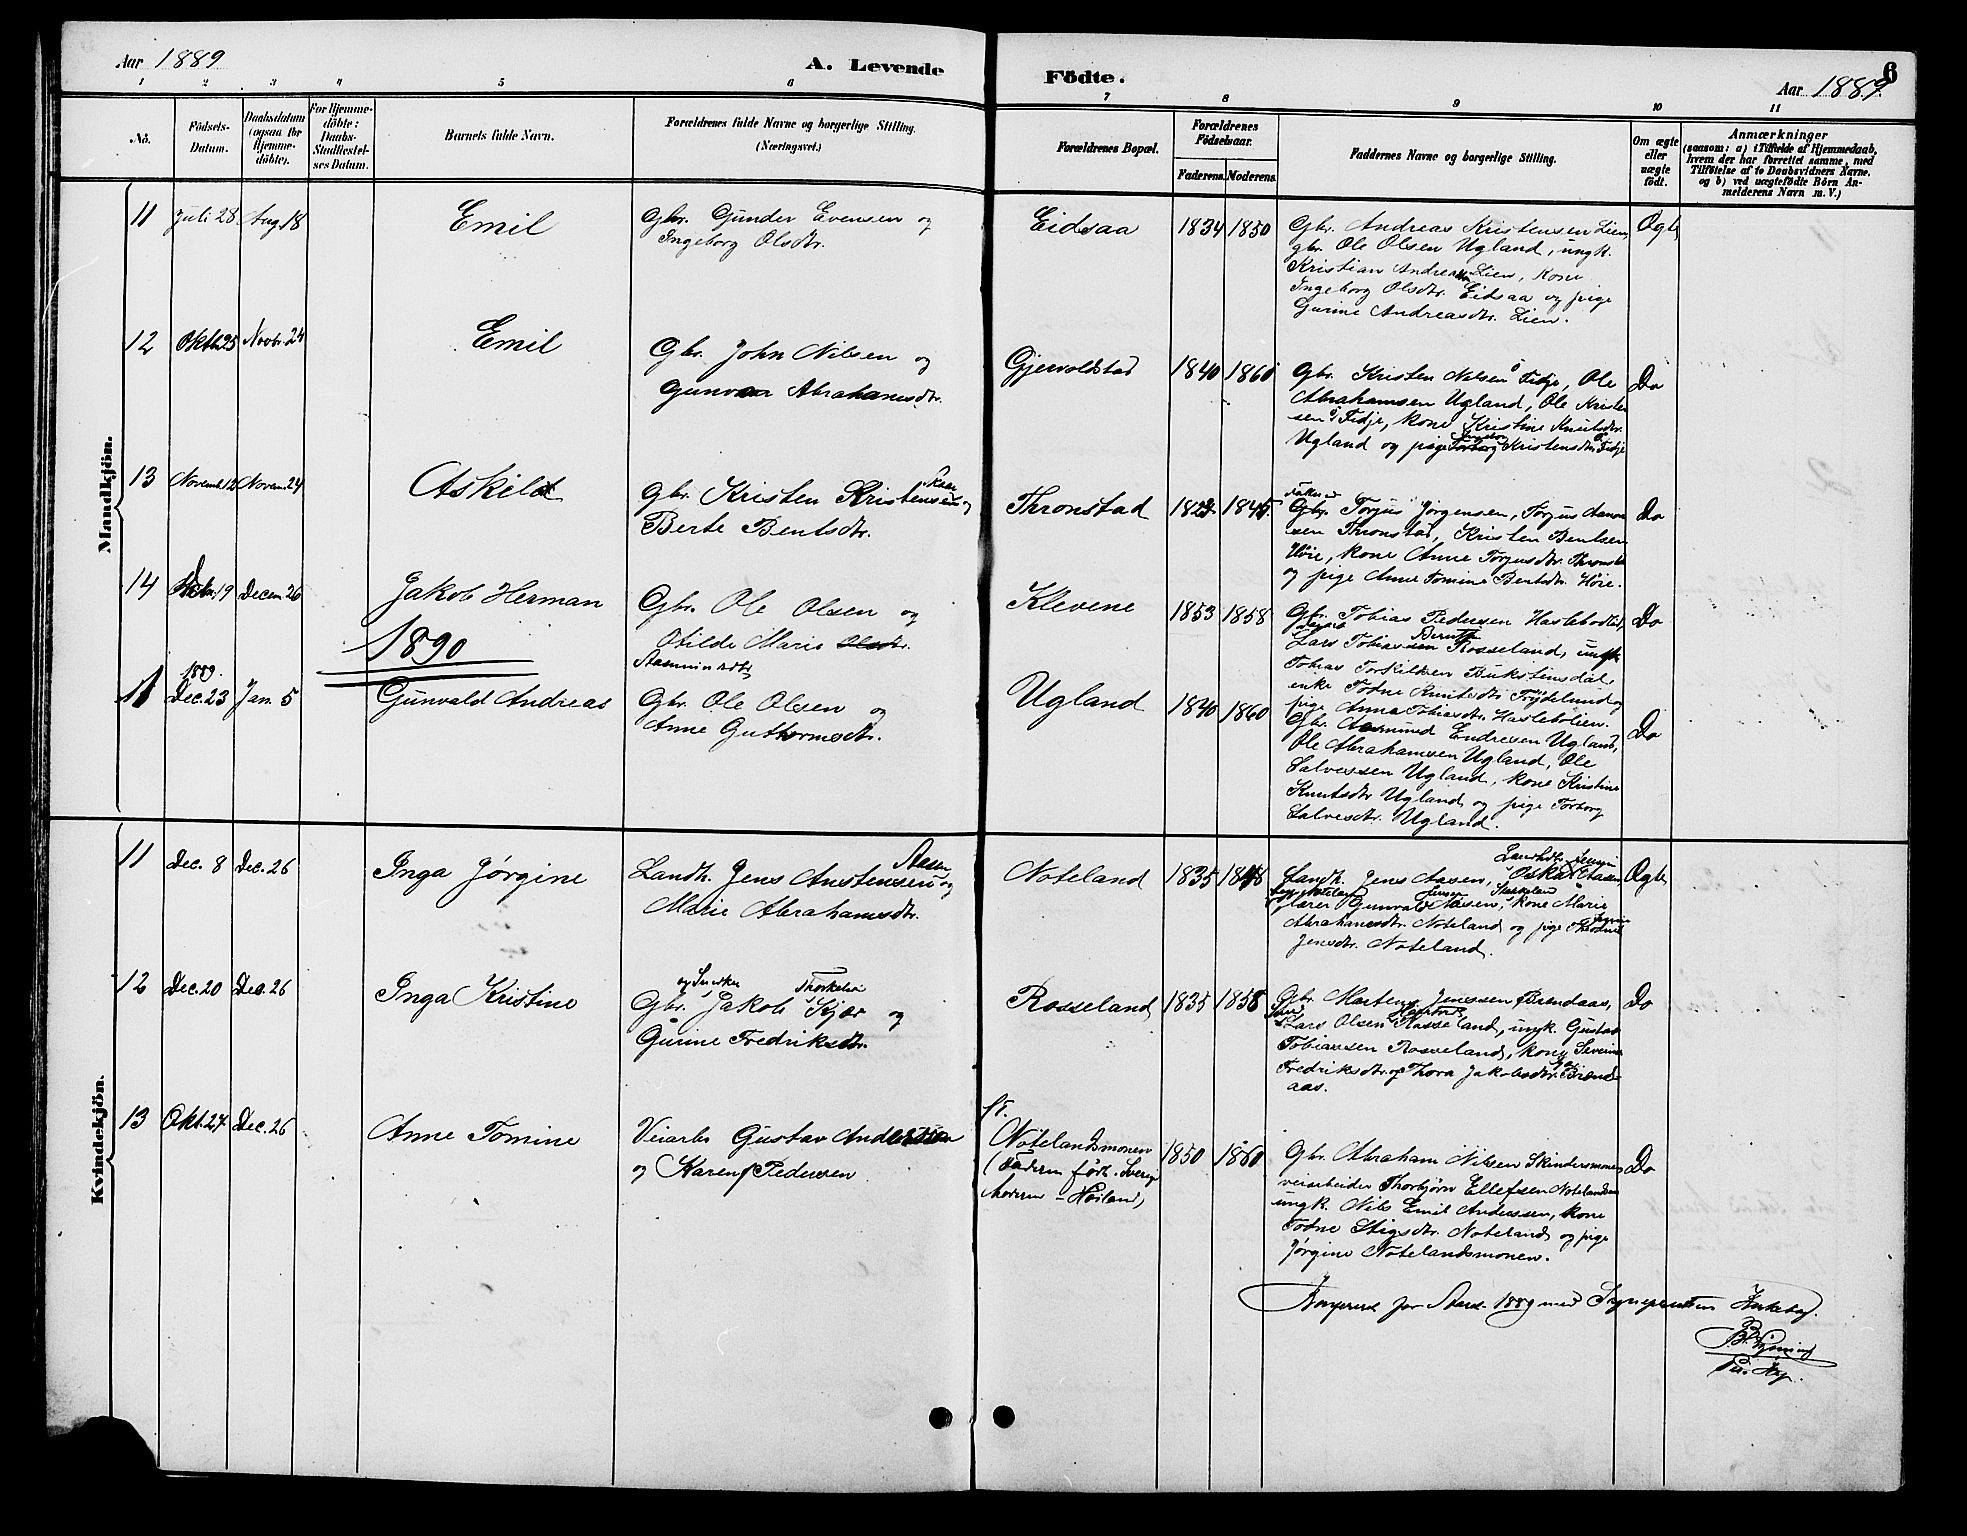 Aar 1889
A. Levende
Födte.
Aar 1889.
6
1 2 3 4 5 6 7 8 9 10 11
No.
Födsels-
Datum.
Daabsdatum
(ogsaa for
Hjemme-
döbte).
For Hjemme-
döbte:
Daabs-
Stadfæstel-
ses Datum.
Barnets fulde Navn.
Forældrenes fulde Navne og borgerlige Stilling.
(Næringsvei.)
Forældrenes Bopæl.
Forældrenes
Födselsaar.
Faderens. Moderens.
Faddernes Navne og borgerlige Stilling.
Om ægte
eller
uægte
födt.
Anmærkninger
(saasom: a) i Tilfælde af Hjemmedaab,
hvem der har forrettet samme, med
Tilföielse af to Daabsvidners Navne.
og b) ved uægtefödte Börn An-
melderens Navn m. V.)
Mandkjön.
11 Juli 28. Aug 18
Emil
Gbr. Gunder Evensen og
Ingeborg Olsdtr.
Eidsaa
1834 1850
Gbr. Andreas Kristensen Lien,
gbr. Ole Olsen Ugland, ungk.
Kristian Andreassen Lien, Kone
Ingeborg Olsdtr. Eidsaa og pige
Gurine Andreasdtr. Lien.
Ægte
12 Okt. 25 Novbr. 24
Emil
Gbr. John Nilsen og
Gunvor Abrahamsdtr.
Gjervoldstad
1840 1860
Gbr. Kristen Nilsen Fidje, Ole
Abrahamsen Ugland, Ole Kristen
sen Fidje, kone Kristine Knutsdtr.
Ugland og pige Kristensdtr. Fidje
Do
13 Novemb. 12 Novem. 24
Askild
Gbr. Kristen Kristensen og
Berte Bentsdtr.
Thronstad
Gbr. Torjus Jörgensen, Torjus Aanon
sen Thronstad, Kristen Bentsen
Høie, kone Anne Torjusdtr. Thronstad
og pige Anne Tomine Bentsdtr. Høie.
Do
14 Decem. 26
Jakob Herman
Gbr. Ole Olsen og
Otilde Marie Olsdtr.
Klevene
1853 1858
Gbr. Tobias Pedersen
Lars Tobiassen Rosseland, ungk
Tobias Torkildsen Bukstensdal,
enke Todne Knutsdtr. Frydelund og
pige Anna Tobiasdtr.
Do
1890
11 1889. Dec. 23 Jan. 5
Gunvald Andreas
Gbr. Ole Olsen og
Anne Guttormsdtr.
Ugland
1840 1860
Gbr. Aasmund Endresen Ugland,
Ole Abrahamsen Ugland, Ole
Salvessen Ugland, kone Kristine
Knutsdtr Ugland og pige Torborg
Salvesdtr. Ugland.
Do
Kvindekjön.
11 Dec. 8 Dec. 26
Inga Jørgine
Aasen
Landh. Jens Anstensen og
Marie Abrahamsdtr.
Noteland
1835 1848
Landh. Jens Aasen, Oskar Aasen,
Gunvald Aasen, kone Marie
Abrahamsdtr. Noteland og pige
Jensdtr. Noteland.
Ægte
12 Dec. 20 Dec. 26
Inga Kristine
og Snedker Thorkelsen
Gbr. Jakob Kjær og
Gurine Fredriksdtr.
Rosseland
1835 1858
Gbr. Morten Jenssen Brendaas,
Lars Olsen Rosseland, ungk. Gustav
Tobiassen Rosseland, kone Severine
Fredriksdtr og Thora Jakobsdtr. Brend-
aas.
Do
13 Okt. 27 Dec. 26
Anne Tomine
Veiarb. Gustav Anderssen
og Karen Pedersen
ft.
Notelandsmonen
(Faderen født i Sverige
Moderen - Høiland)
1850 1860
Gbr. Abraham Nilsen Skindersmonen
veiarbeider Thorbjörn Ellefsen Notelandsm
ungk. Nils Emil Anderssen, kone
Todne Stigsdtr. Noteland og pige
Jørgine Notelandsmonen.
Do
1889 med